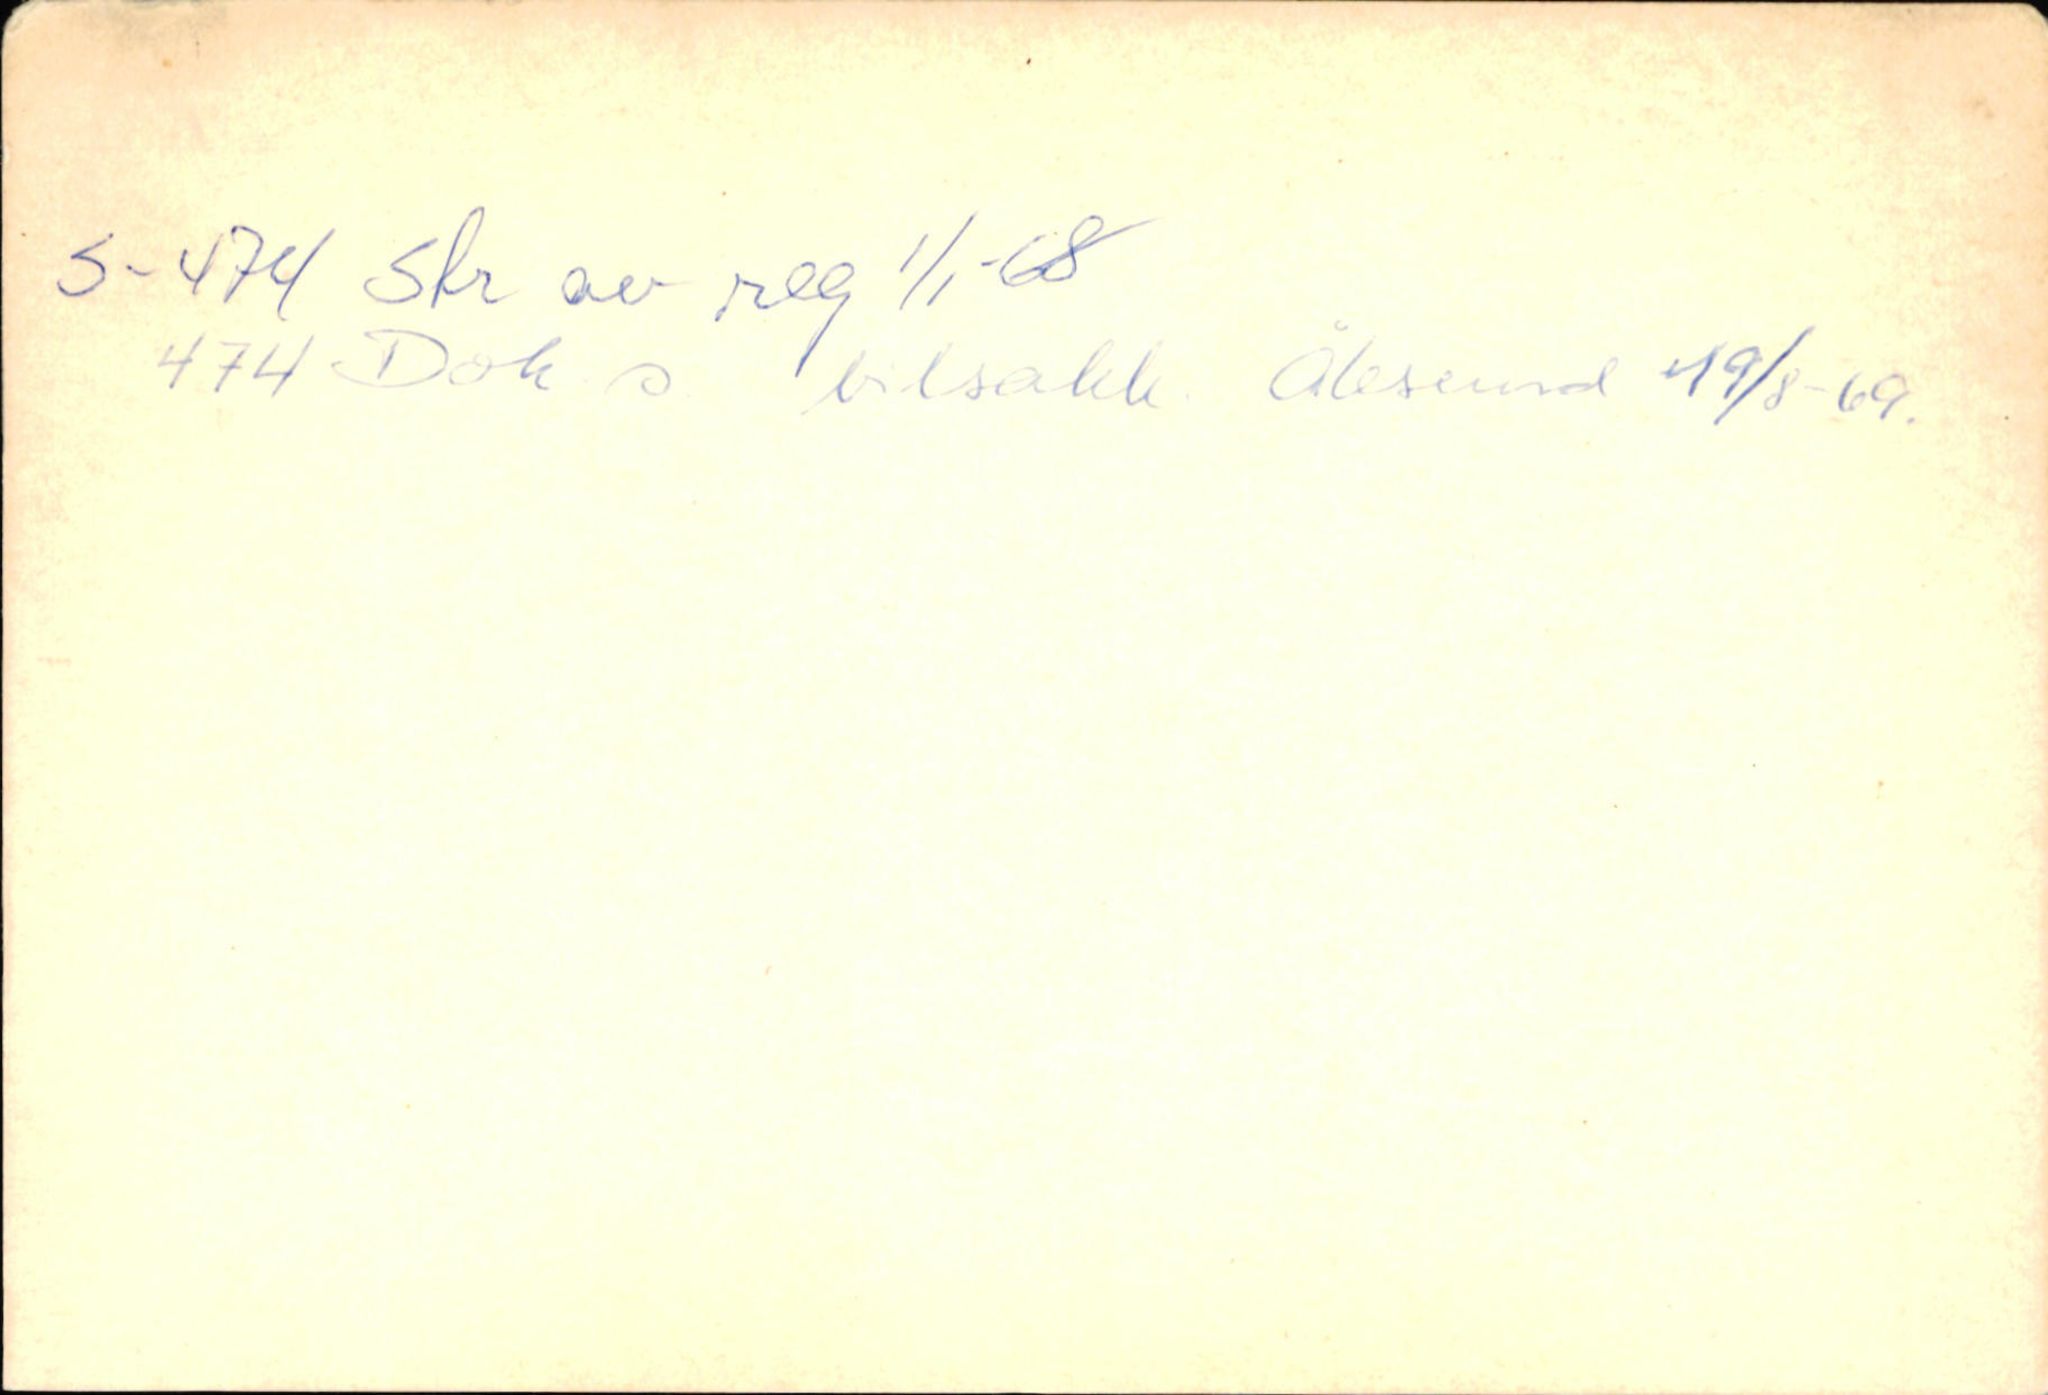 S-474 Skr av reg 1/1-68
474 Dok s. bilsakk. Ålesund 19/8-69.